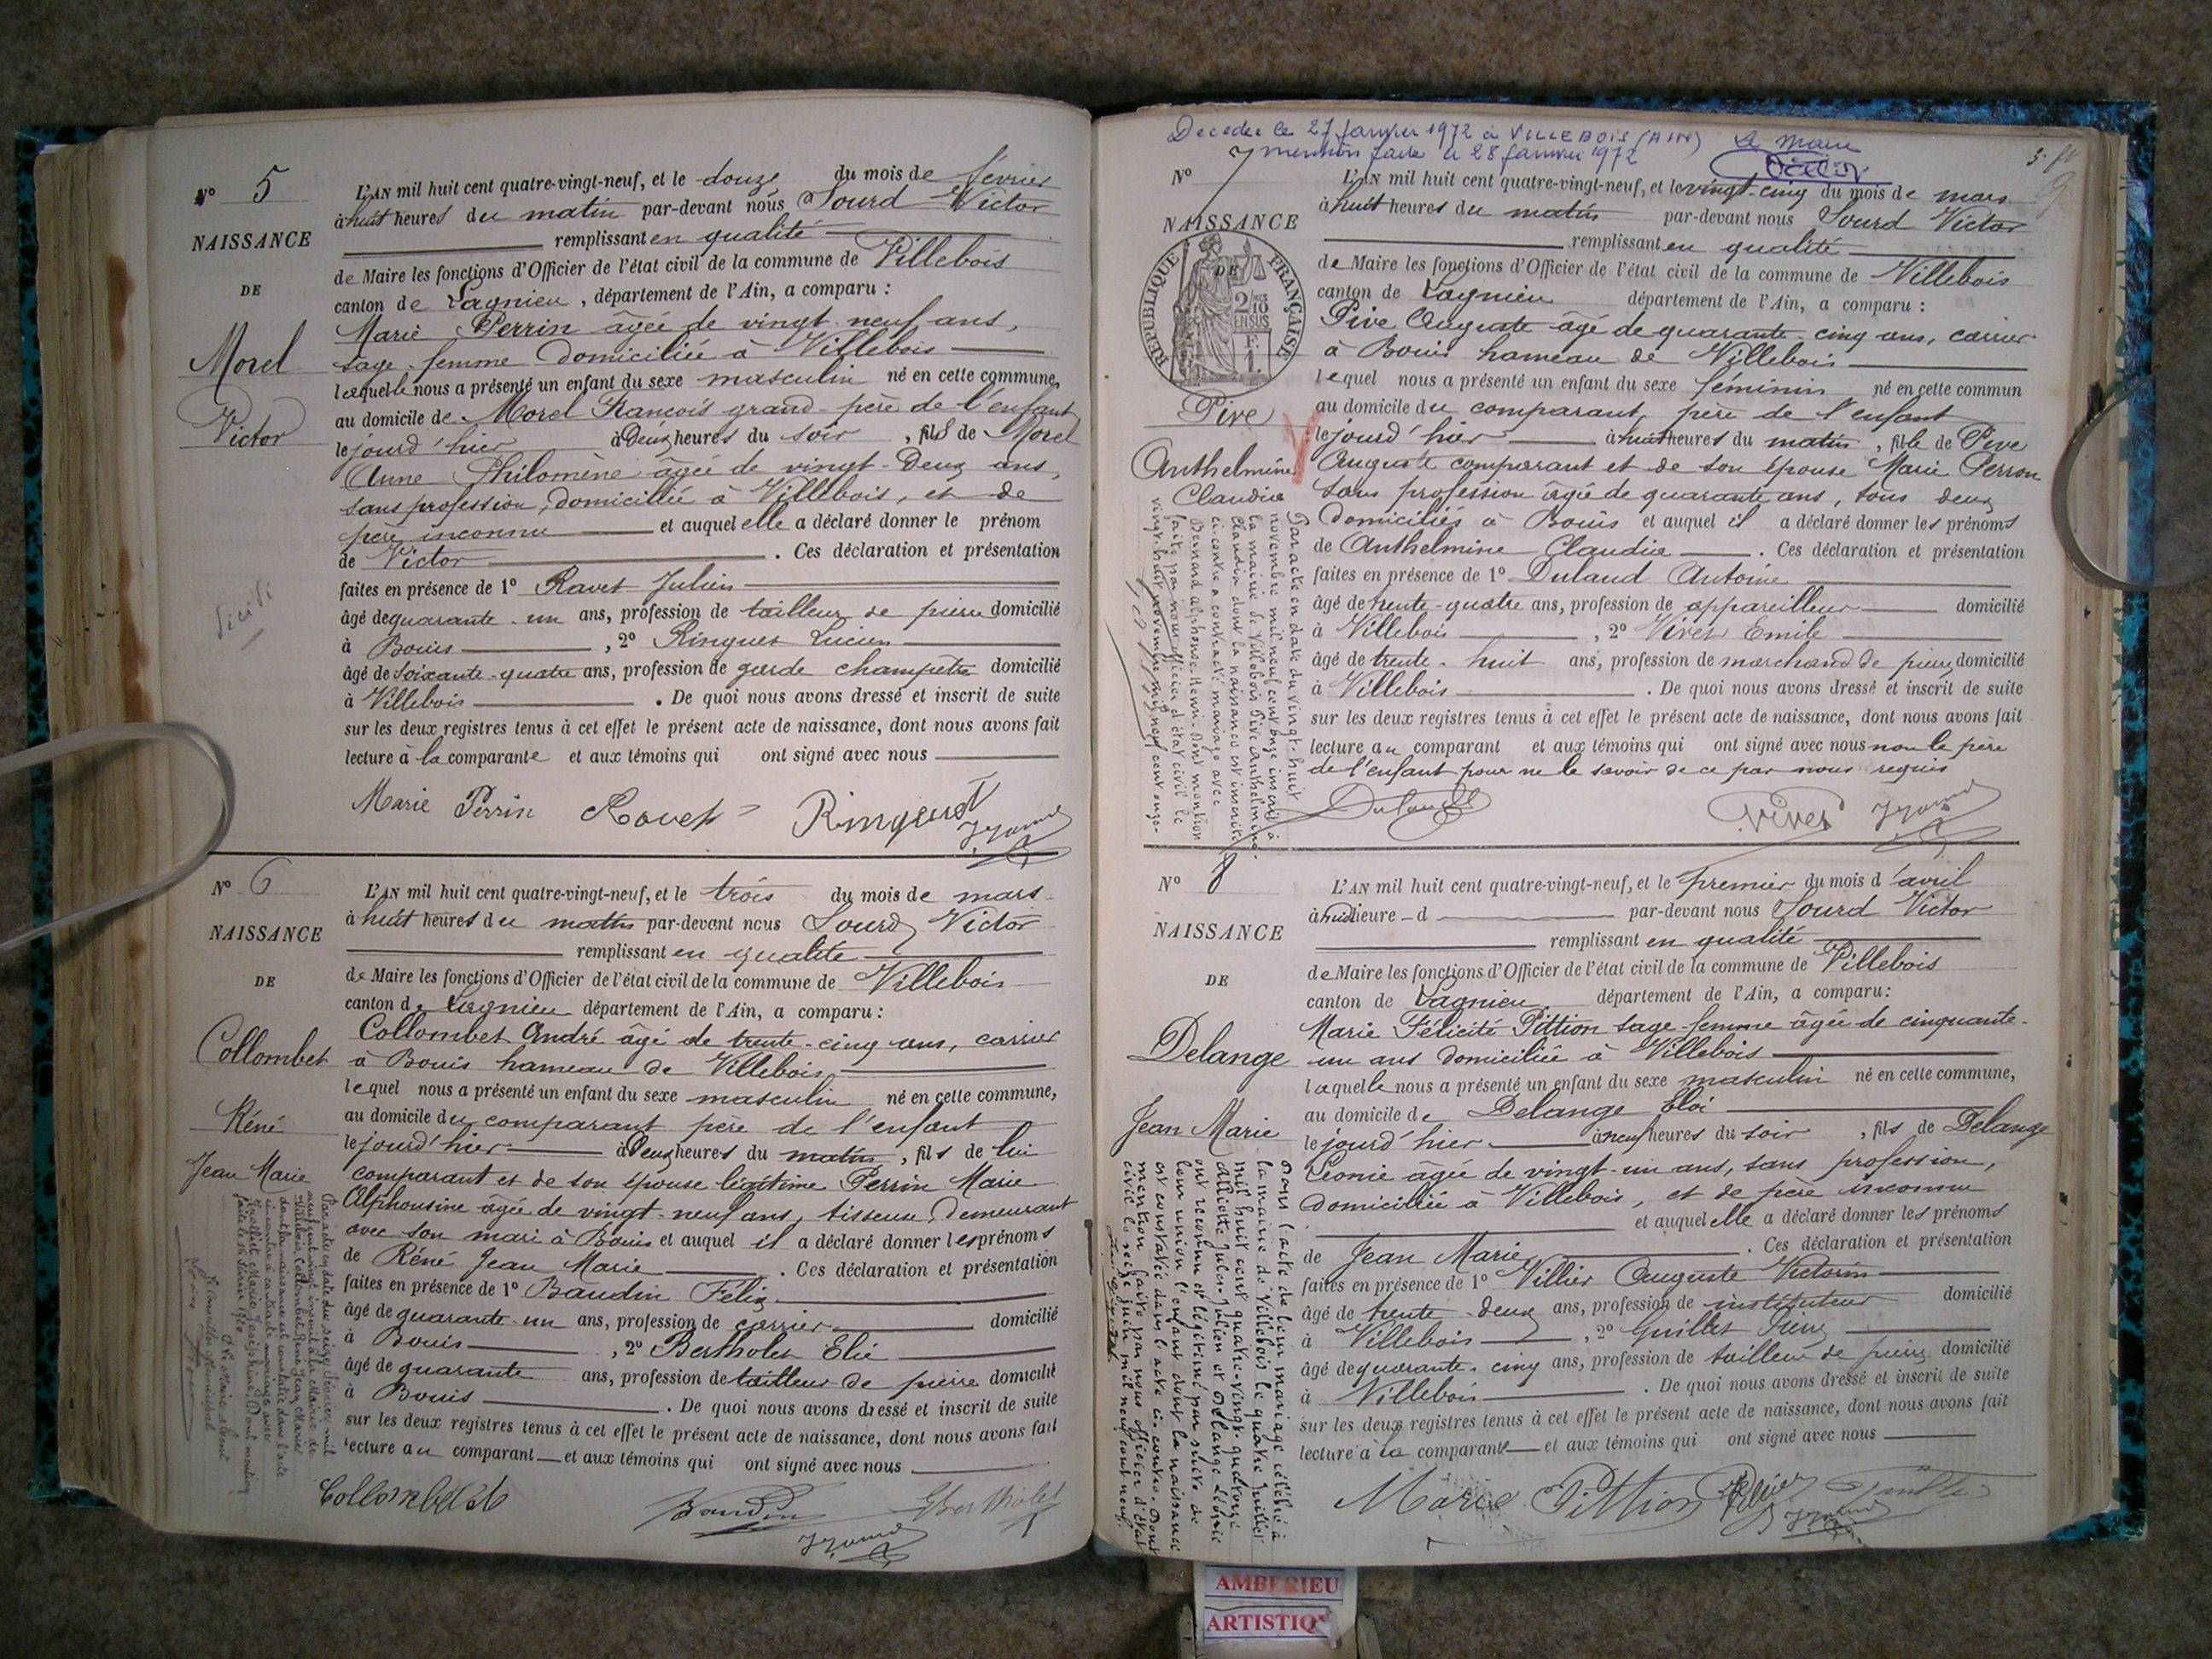 N° 5
NAISSANCE
DE
Morel
Victor
L'AN mil huit cent quatre-vingt-neuf, et le douze du mois de février
à huit heures du matin par-devant nous Sourd Victor
remplissant en qualité
de Maire les fonctions d'Officier de l'état civil de la commune de Villebois
canton de Lagnieu, département de l'Ain, a comparu :
Marie Perrin âgée de vingt-neuf ans,
sage-femme domiciliée à Villebois
laquelle nous a présenté un enfant du sexe masculin né en cette commune,
au domicile de Morel François grand-père de l'enfant
le jourd'hier à deux heures du soir, fils de Morel
Anne Philomène âgée de vingt-deux ans,
sans profession, domiciliée à Villebois, et de
père inconnu et auquel elle a déclaré donner le prénom
de Victor. Ces déclaration et présentation
faites en présence de 1° Ravet Julien
âgé de quarante-un ans, profession de tailleur de pierre domicilié
à Bouis, 2° Ringuet Lucien
âgé de soixante-quatre ans, profession de garde champêtre domicilié
à Villebois. De quoi nous avons dressé et inscrit de suite
sur les deux registres tenus à cet effet le présent acte de naissance, dont nous avons fait
lecture à la comparante et aux témoins qui ont signé avec nous
Marie Perrin Ravet Ringuet
N° 6
NAISSANCE
DE
Collombet
Réné
Jean Marie
L'AN mil huit cent quatre-vingt-neuf, et le trois du mois de mars
à huit heures du matin par-devant nous Sourd Victor
remplissant en qualité
de Maire les fonctions d'Officier de l'état civil de la commune de Villebois
canton de Lagnieu département de l'Ain, a comparu :
Collombet André âgé de trente-cinq ans, carrier
à Bouis hameau de Villebois
lequel nous a présenté un enfant du sexe masculin né en cette commune,
au domicile du comparant père de l'enfant
le jourd'hier à deux heures du matin, fils de lui
comparant et de son épouse légitime Perrin Marie
Alphonsine âgée de vingt-neuf ans, tisseuse, demeurant
avec son mari à Bouis et auquel il a déclaré donner les prénoms
de Réné Jean Marie. Ces déclaration et présentation
faites en présence de 1° Baudin Félix
âgé de quarante-un ans, profession de carrier domicilié
à Bouis, 2° Bertholet Elie
âgé de quarante ans, profession de tailleur de pierre domicilié
à Bouis. De quoi nous avons dressé et inscrit de suite
sur les deux registres tenus à cet effet le présent acte de naissance, dont nous avons fait
lecture au comparant et aux témoins qui ont signé avec nous
Collombet Baudin Bertholet
Décédée le 27 janvier 1972 à VILLEBOIS (AIN) Le Maire
mention faite le 28 janvier 1972
N° 7
NAISSANCE
DE
RÉPUBLIQUE FRANÇAISE
Pive
Anthelmine
Claudia
L'AN mil huit cent quatre-vingt-neuf, et le vingt-cinq du mois de mars
à huit heures du matin par-devant nous Sourd Victor
remplissant en qualité
de Maire les fonctions d'Officier de l'état civil de la commune de Villebois
canton de Lagnieu département de l'Ain, a comparu :
Pive Auguste âgé de quarante-cinq ans, carrier
à Bouis hameau de Villebois
lequel nous a présenté un enfant du sexe féminin né en cette commun
au domicile du comparant, père de l'enfant
le jourd'hier à huit heures du matin, fille de Pive
Auguste comparant et de son épouse Marie Perron
sans profession âgée de quarante ans, tous deux
domiciliés à Bouis et auquel il a déclaré donner les prénoms
de Anthelmine Claudia. Ces déclaration et présentation
faites en présence de 1° Dulaud Antoine
âgé de trente-quatre ans, profession de appareilleur domicilié
à Villebois, 2° Vivet Emile
âgé de trente-huit ans, profession de marchand de pierre, domicilié
à Villebois. De quoi nous avons dressé et inscrit de suite
sur les deux registres tenus à cet effet le présent acte de naissance, dont nous avons fait
lecture au comparant et aux témoins qui ont signé avec nous non le père
de l'enfant pour ne le savoir de ce par nous requis
Vivet
Par acte en date du vingt-huit
novembre mil neuf cent onze inscrit à
la mairie de Villebois, Pive Anthelmine-
Claudia dont la naissance est inscrite
ci-contre a contracté mariage avec
Bernard Alphonse Henri. Dont mention
faite par nous officier d'état civil le
vingt-huit novembre mil neuf cent onze.
N° 8
NAISSANCE
DE
Delange
Jean Marie
L'AN mil huit cent quatre-vingt-neuf, et le premier du mois d'avril
à midi heure d par-devant nous Sourd Victor
remplissant en qualité
de Maire les fonctions d'Officier de l'état civil de la commune de Villebois
canton de Lagnieu département de l'Ain, a comparu:
Marie Félicité Pittion sage-femme âgée de cinquante-
un ans domiciliée à Villebois
laquelle nous a présenté un enfant du sexe masculin né en cette commune,
au domicile de Delange Eloi
le jourd'hier à neuf heures du soir, fils de Delange
Léonie âgée de vingt-un ans, sans profession,
domiciliée à Villebois, et de père inconnu
et auquel elle a déclaré donner les prénoms
de Jean Marie. Ces déclaration et présentation
faites en présence de 1° Villier Auguste Victorin
âgé de trente-deux ans, profession de instituteur domicilié
à Villebois, 2°
âgé de quarante-cinq ans, profession de tailleur de pierre domicilié
à Villebois. De quoi nous avons dressé et inscrit de suite
sur les deux registres tenus à cet effet le présent acte de naissance, dont nous avons fait
lecture à la comparante et aux témoins qui ont signé avec nous
Marie Pittion
Dans l'acte de leur mariage célébré à
la mairie de Villebois le quatre juillet
mil huit cent quatre-vingt-quatorze
Julien et Delange Léonie
ont reconnu et légitimé par suite de
leur union l'enfant dont la naissance
est constatée dans l'acte ci-contre. Dont
mention faite par nous officier d'état
civil le juin mil neuf cent neuf.
AMBERIEU
ARTISTIQ